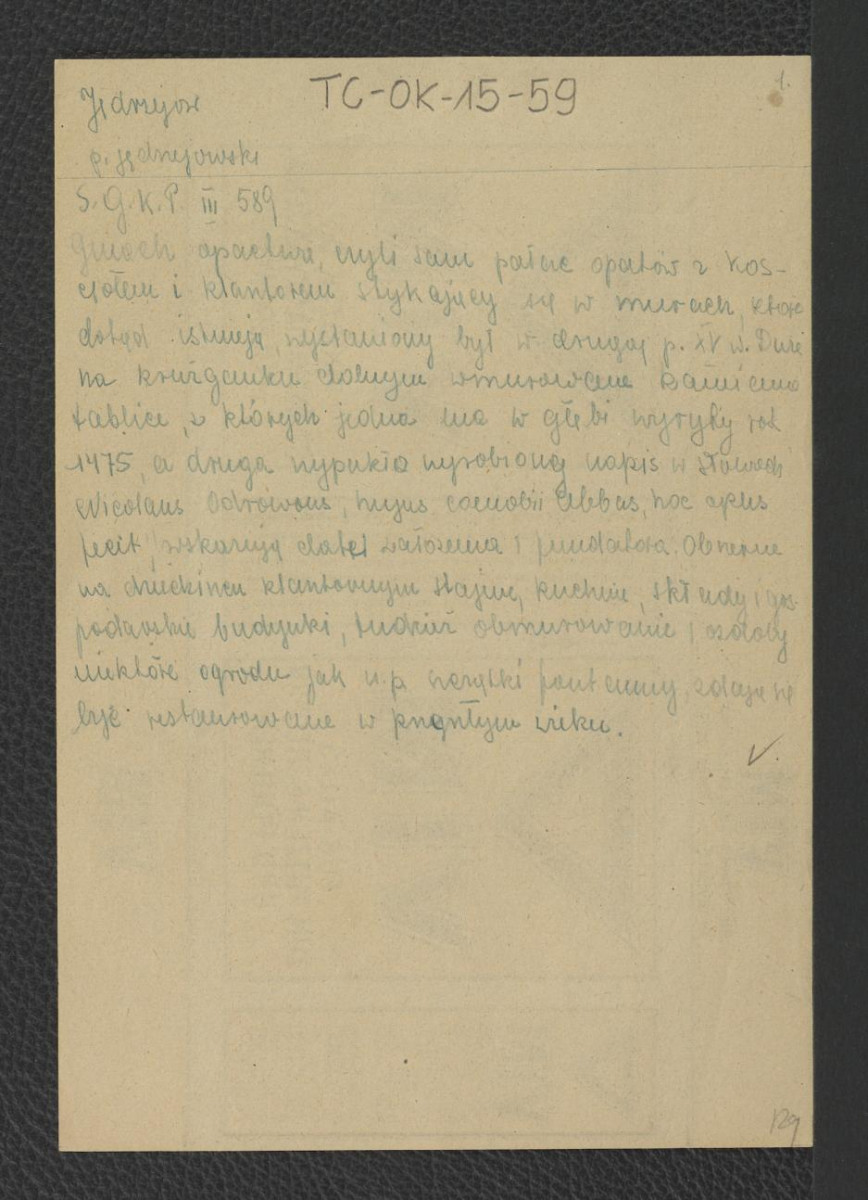 TC-OK-15-59
1.
Jędrzejow
p. jędrzejowski
S.G.K.P. III 589
Gmach opactwa, czyli sam pałac opatów z koś-
ciołem i klasztorem stykający się w murach, które
dotąd istnieją, wystawiony był w drugiej p. XV w. Dwie
na krużganku dolnym wmurowane kamienne
tablice, z których jedna ma w głębi wyryty rok
1475, a druga wypukło wyrobiony napis w słowach
Nicolaus Odrowous, hujus coenobii Abbas, hoc opus
fecit, wskazują datę założenia i fundatora. Obszerne
na dziedzińcu klasztornym stajnie, kuchnie, składy i gos-
podarskie budynki, tudzież obmurowanie i ozdoby
niektóre ogrodu jak n.p. szczątki fontanny, zdają się
być restaurowane w przeszłym wieku.
V.
129